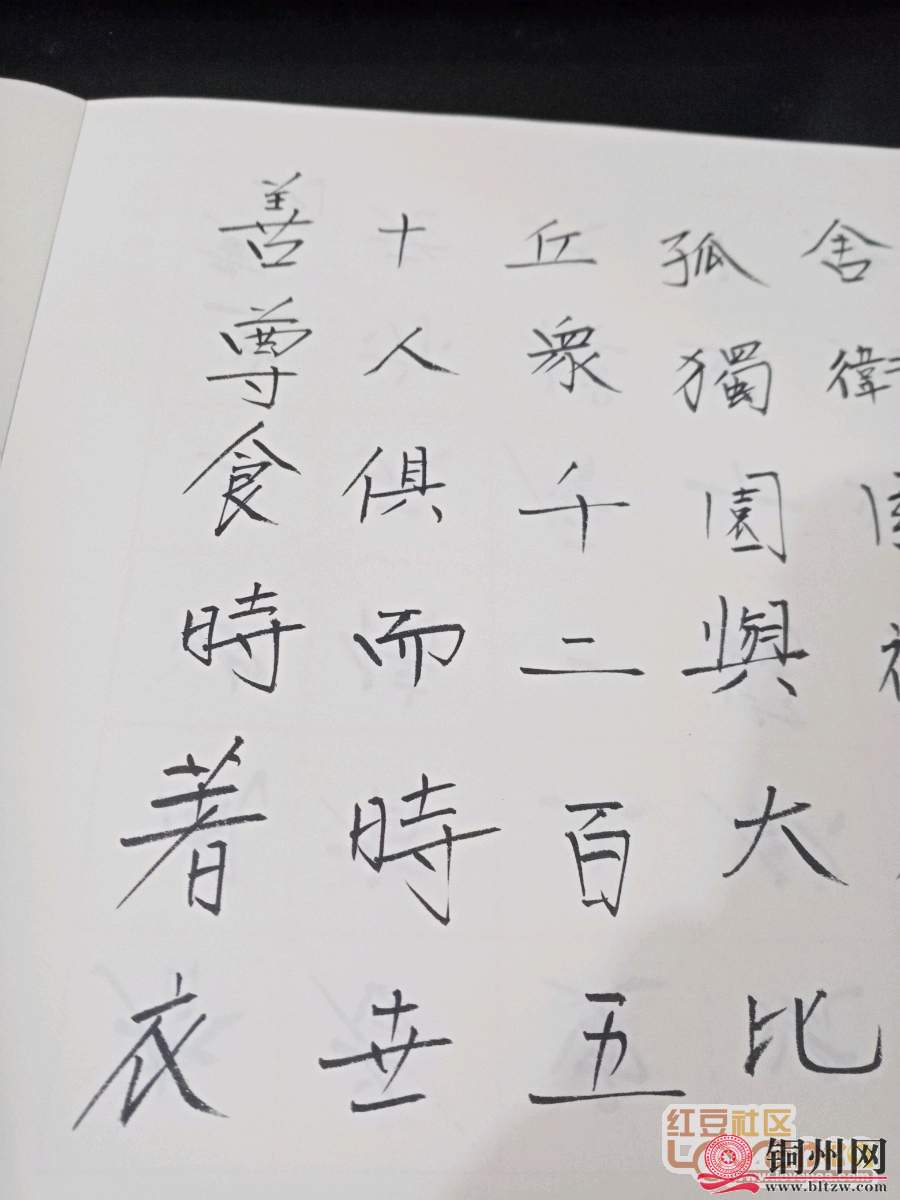 舍衛
孤獨園與大比
丘衆千二百五
十人俱而時世
善尊食時著衣
红豆社区
铜州网
www.bltzw.com